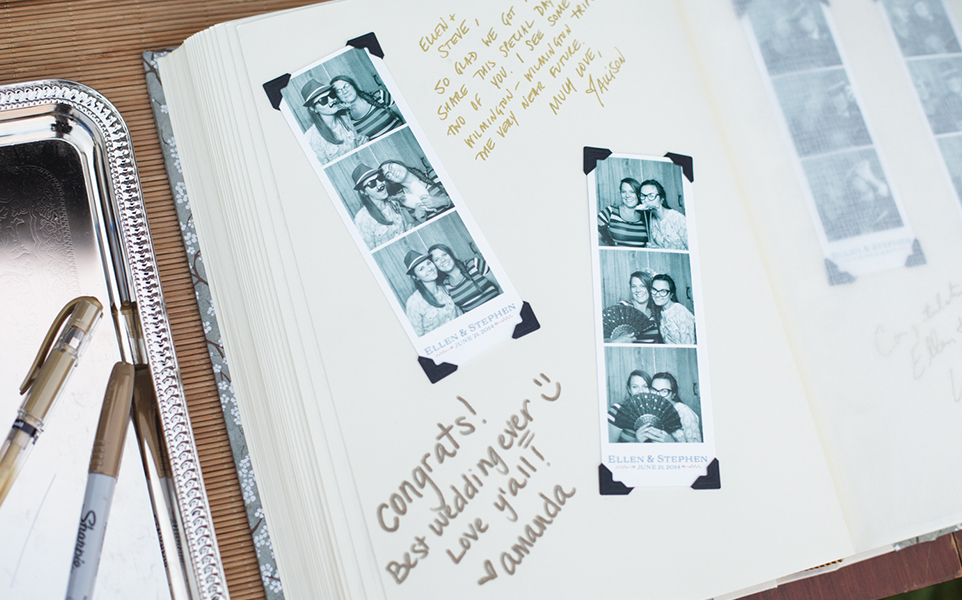 ELLEN +
STEVE,
SO GLAD WE GOT
SHARE THIS SPECIAL DAY
TWO OF YOU. I SEE SOME
WILMINGTON - WILMINGTON TRIPS
THE VERY NEAR FUTURE.
MUCH LOVE,
ELLEN & STEPHEN
JUNE 21, 2014
ELLEN & STEPHEN
JUNE 21, 2014
Congrats!
Best wedding ever :)
Love y'all!
amanda
Sharpie